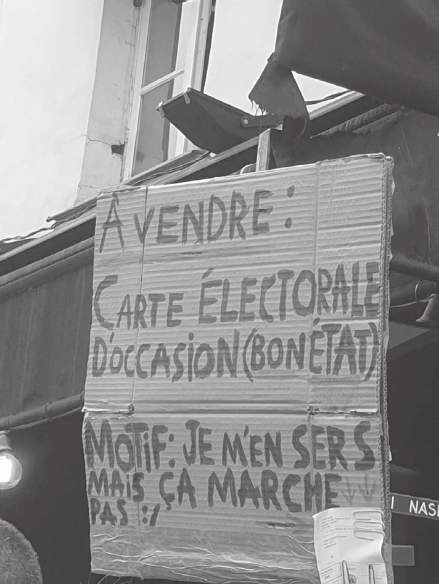 À VENDRE :
CARTE ÉLECTORALE
D'OCCASION (BON ÉTAT)
MOTIF : JE M'EN SERS
MAIS ÇA MARCHE
PAS :/